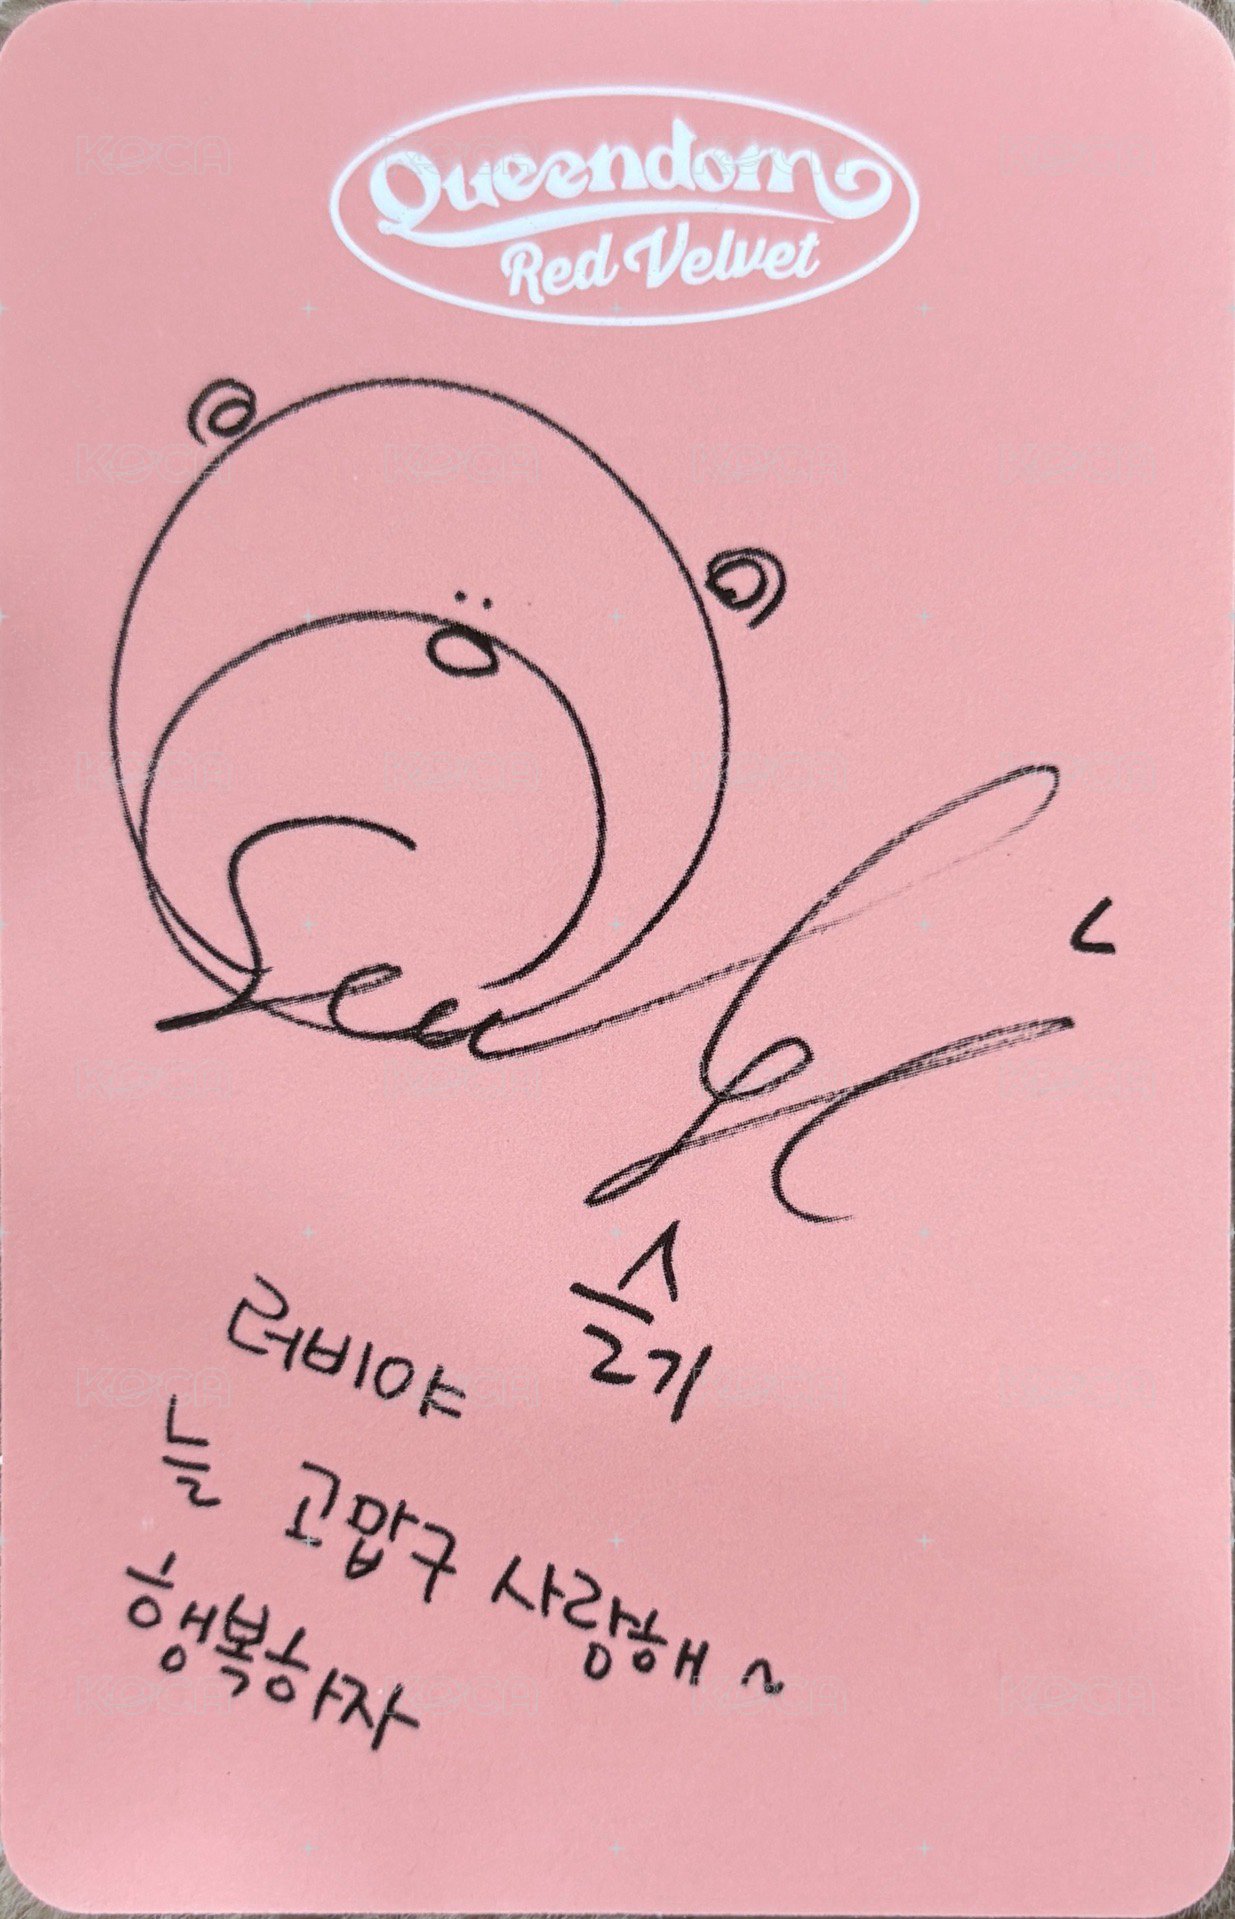 Queendom
Red Velvet
Seulgi
슬기
러비야
늘 고맙구 사랑해~
행복하자
KOCA